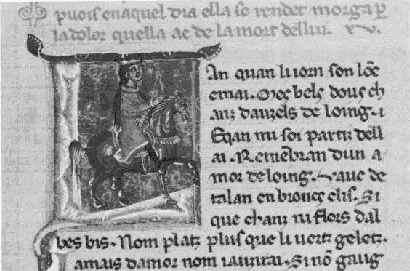 puois enaquel dia ella se rendet morga ꝑ
la dolor quella ac de la mort de llui. xv.
LAn quan li iorn son lōc
emai. Moe bels dous ch
anz dauzels de loing. i
Eqan mi soi partiz dell
ai. Remēbran dun a
mor de loing. Uauc de
talan enbroncz clis. Si
que chanz ni flors dal
bes bis. Nom platz plus que li uertz geletz.
amais damor nom iauzirai. Si nō gaug